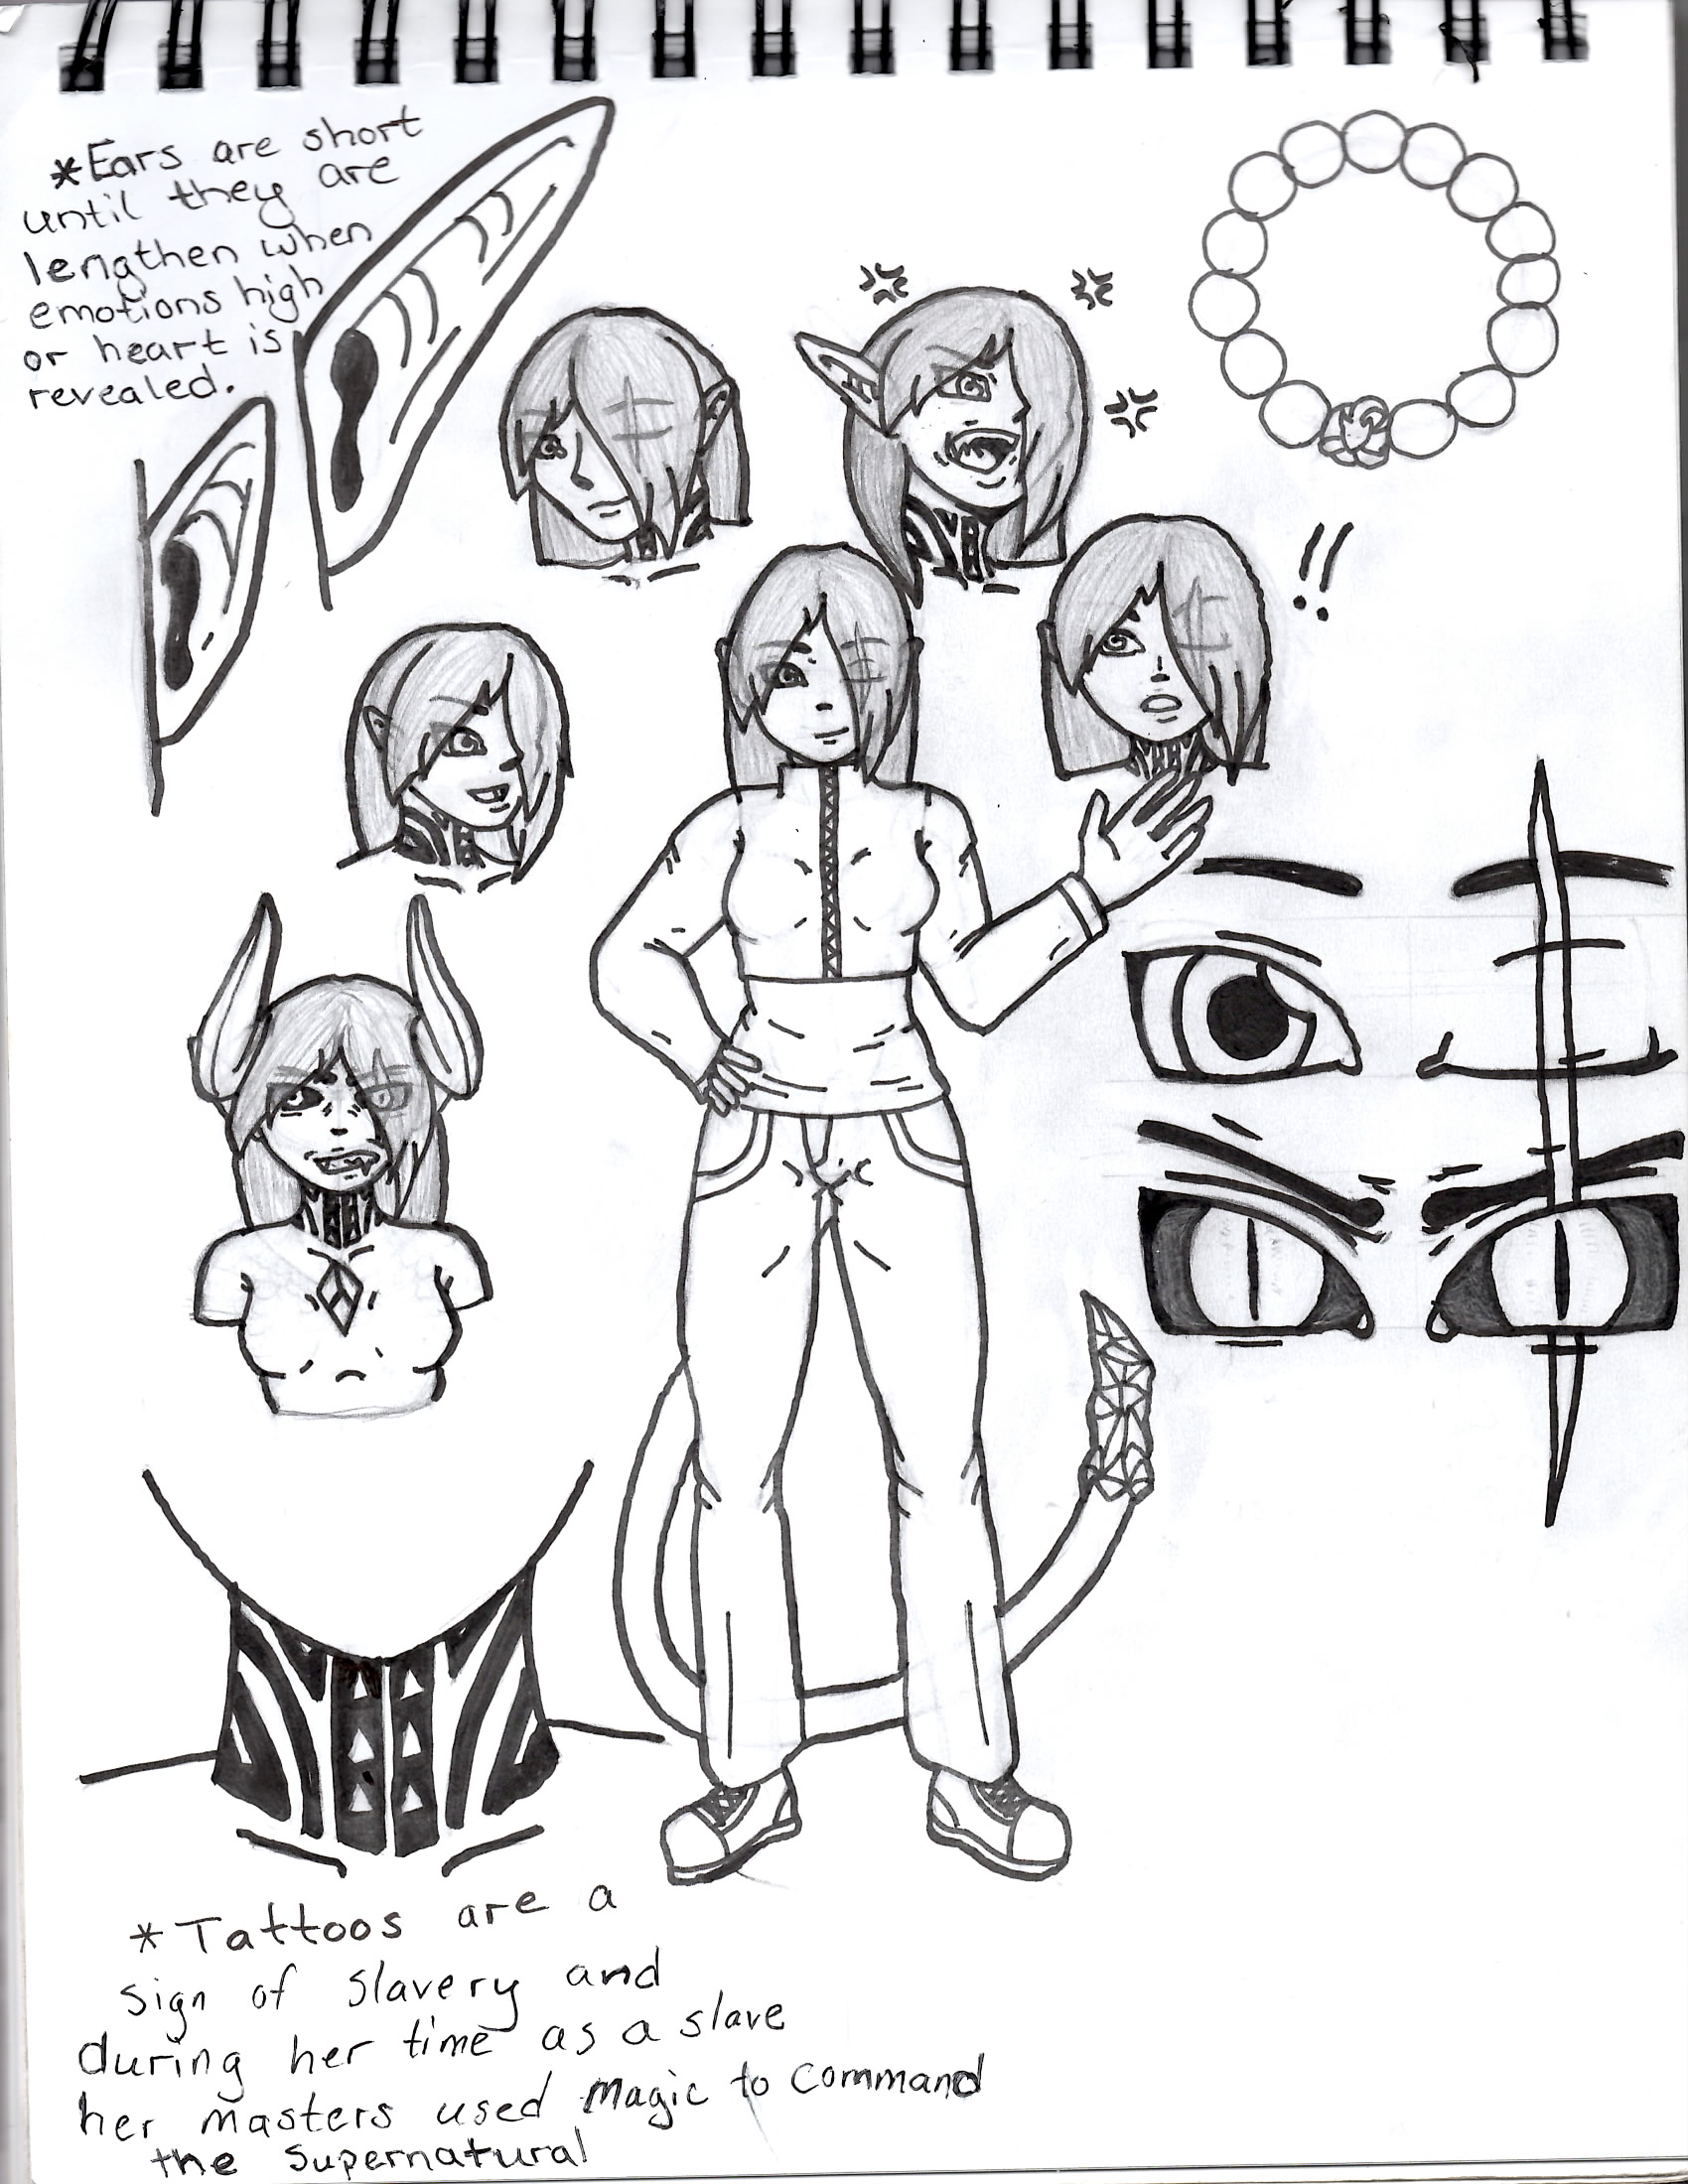 *Ears are short
until they are
lengthen when
emotions high
or heart is
revealed.
!!
*Tattoos are a
sign of slavery and
during her time as a slave
her masters used magic to command
the supernatural